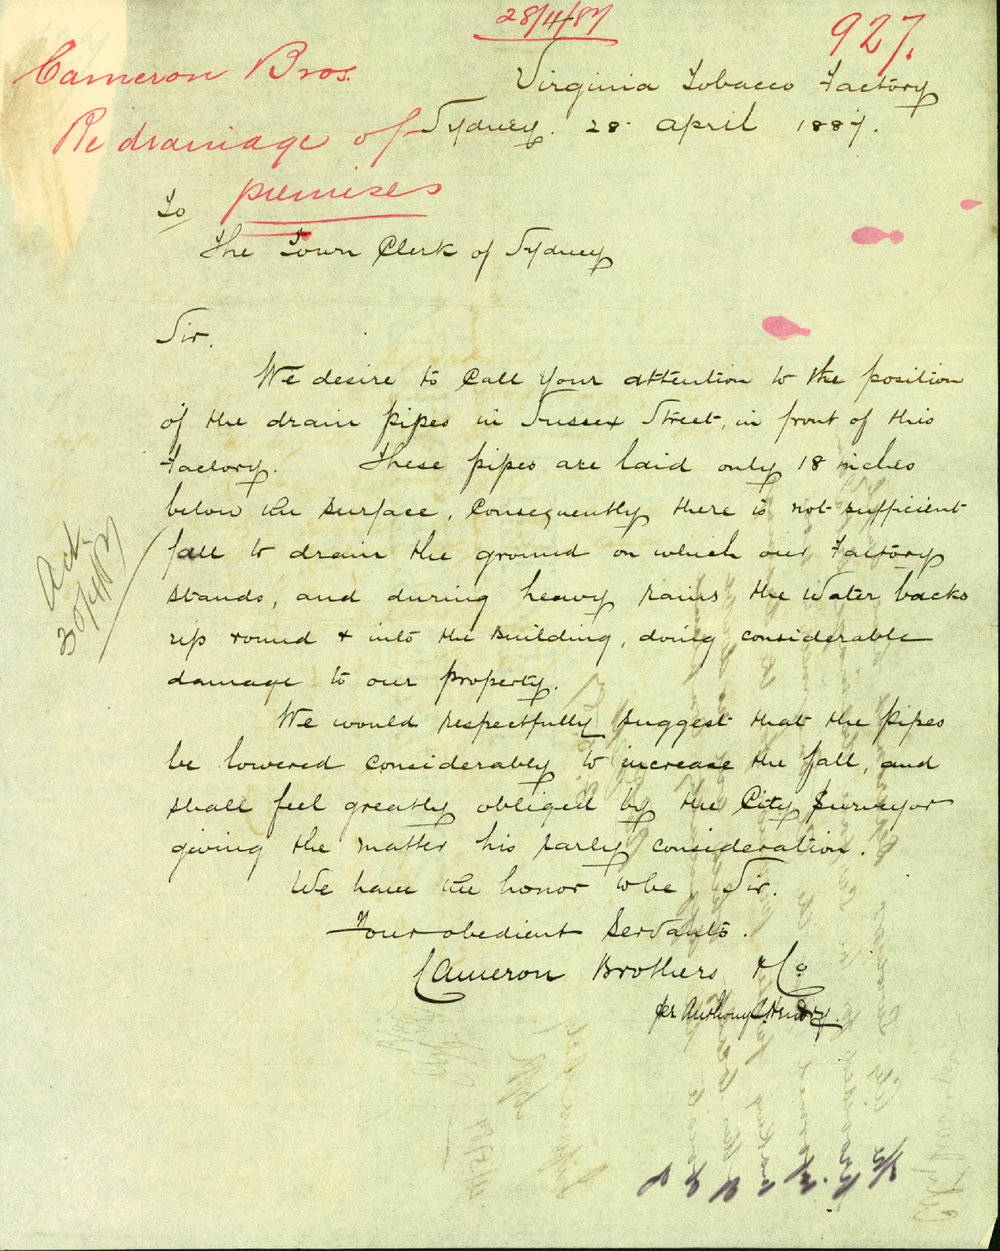 28/4/87
927.
Cameron Bros.
Re drainage of
premises
Virginia Tobacco Factory
Sydney. 28 April 1887.
To
The Town Clerk of Sydney
Sir.
We desire to Call Your attention to the position
of the drain pipes in Sussex Street, in front of this
Factory. These pipes are laid only 18 inches
below the surface, Consequently there is not sufficient
fall to drain the ground on which our Factory
stands, and during heavy rains the Water backs
up round & into the Building, doing considerable
damage to our property.
We would respectfully suggest that the pipes
be lowered Considerably to increase the fall, and
shall feel greatly obliged by the City Surveyor
giving the matter his early consideration.
We have the honor to be, Sir.
Your obedient Servants.
Cameron Brothers & Co
per Anthony
Ack.
30/4/87